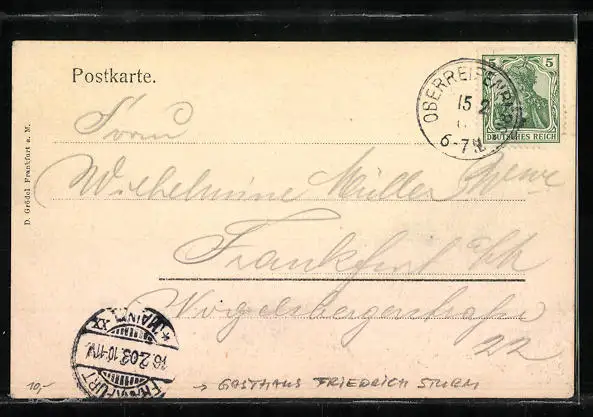 Postkarte.
OBERREIFENBERG
15 2
6-7N.
5 5
DEUTSCHES REICH
Frau
Wilhelmine Müller Wwe
Frankfurt a/M
Vogelsbergerstraße
22
D. Grödel Frankfurt a. M.
FRANKFURT
(MAIN) XX
16.2.03.10-11V.
10,-
→ GASTHAUS FRIEDRICH STURM